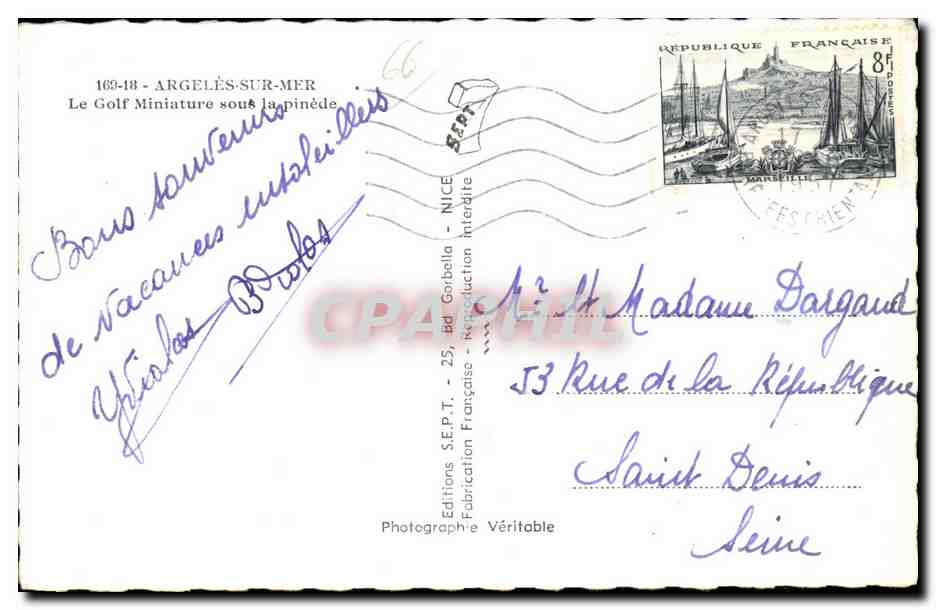 169-18 - ARGELÈS-SUR-MER
Le Golf Miniature sous la pinède
66
Bons souvenirs
de vacances ensoleillés
SEPT
RÉPUBLIQUE FRANÇAISE
8F
POSTES
MARSEILLE
Editions S.E.P.T. - 25, Bd Gorbella - NICE
Fabrication Française - Reproduction Interdite
CPAPHIL
Mr. et Madame Dargaud
53 Rue de la République
Saint Denis
Seine
Photographie Véritable